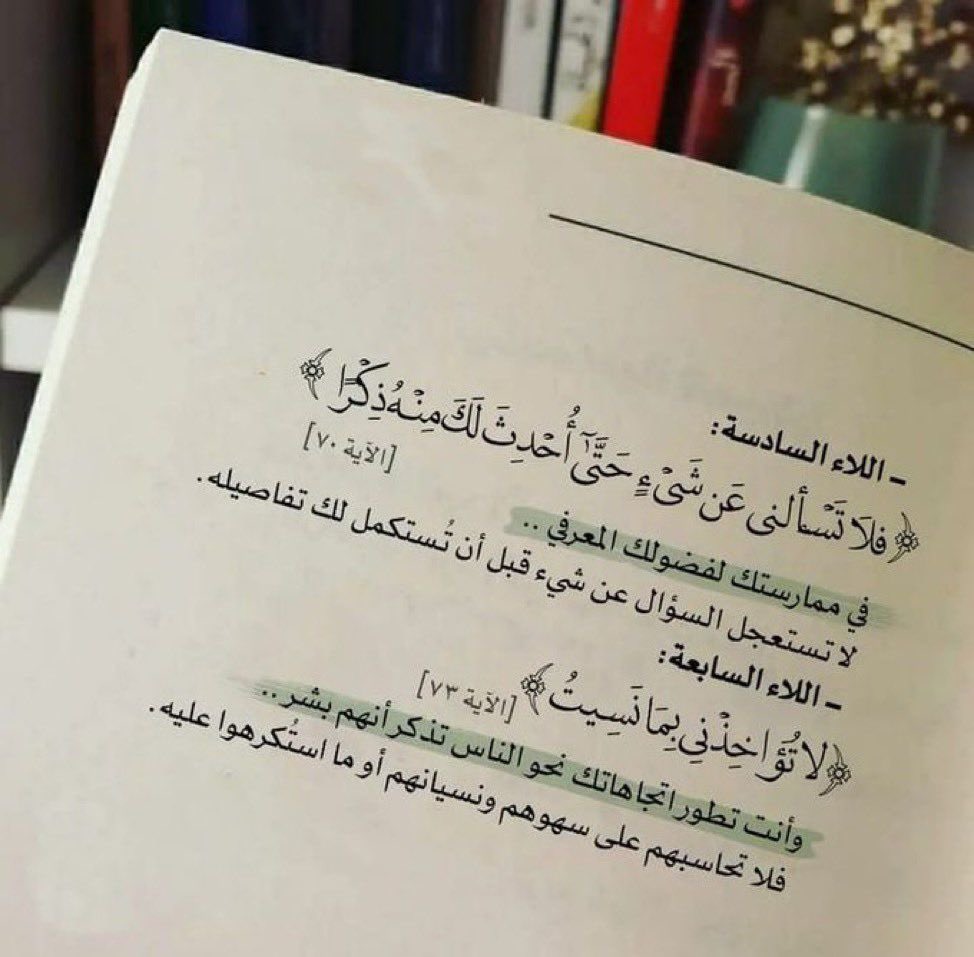 - اللاء السادسة:
﴿فَلَا تَسْأَلْنِي عَن شَيْءٍ حَتَّىٰ أُحْدِثَ لَكَ مِنْهُ ذِكْرًا﴾
[الآية ٧٠]
في ممارستك لفضولك المعرفي ..
لا تستعجل السؤال عن شيء قبل أن تُستكمل لك تفاصيله.
- اللاء السابعة:
﴿لَا تُؤَاخِذْنِي بِمَا نَسِيتُ﴾ [الآية ٧٣]
وأنت تطور اتجاهاتك نحو الناس تذكر أنهم بشر ..
فلا تحاسبهم على سهوهم ونسيانهم أو ما استُكرهوا عليه.